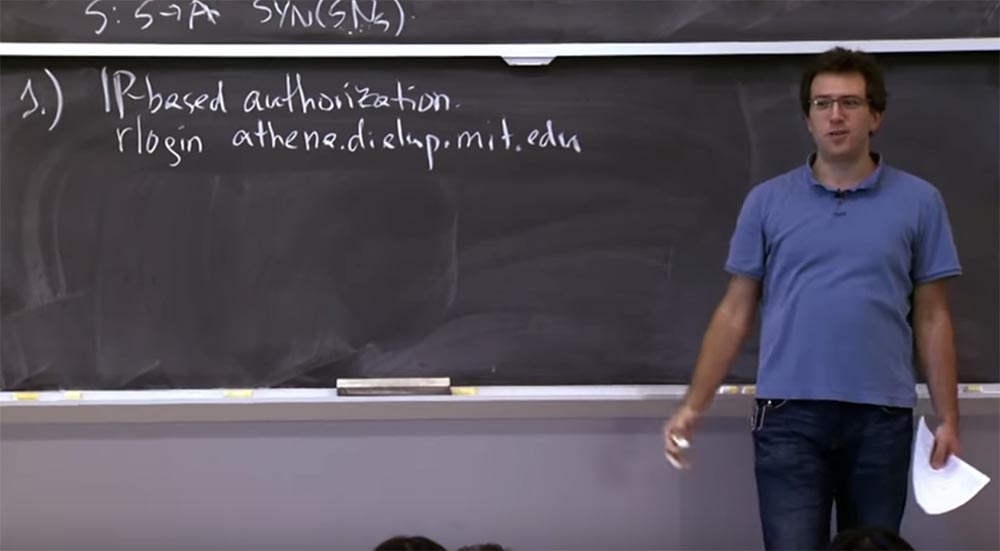 S: S→A SYN(SNs)
1.) IP-based authorization.
rlogin athena.dialup.mit.edu